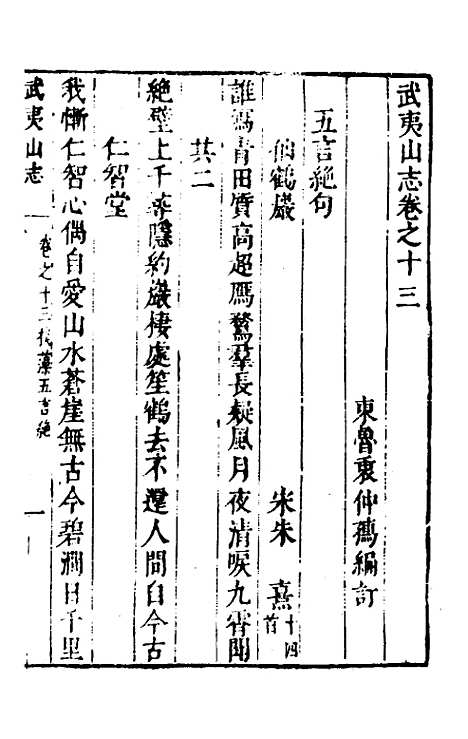 武夷山志卷之十三
東魯衷仲孺編訂
五言絕句
仙鶴巖 宋朱 熹十四首
誰寫青田質高超鴈鶩羣長疑風月夜清唳九霄聞
共二
絶壁上千尋隱約巖棲處笙鶴去不還人間自今古
仁智堂
我慚仁智心偶自愛山水蒼崖無古今碧澗日千里
武夷山志 卷之十三 藻五言絕 一